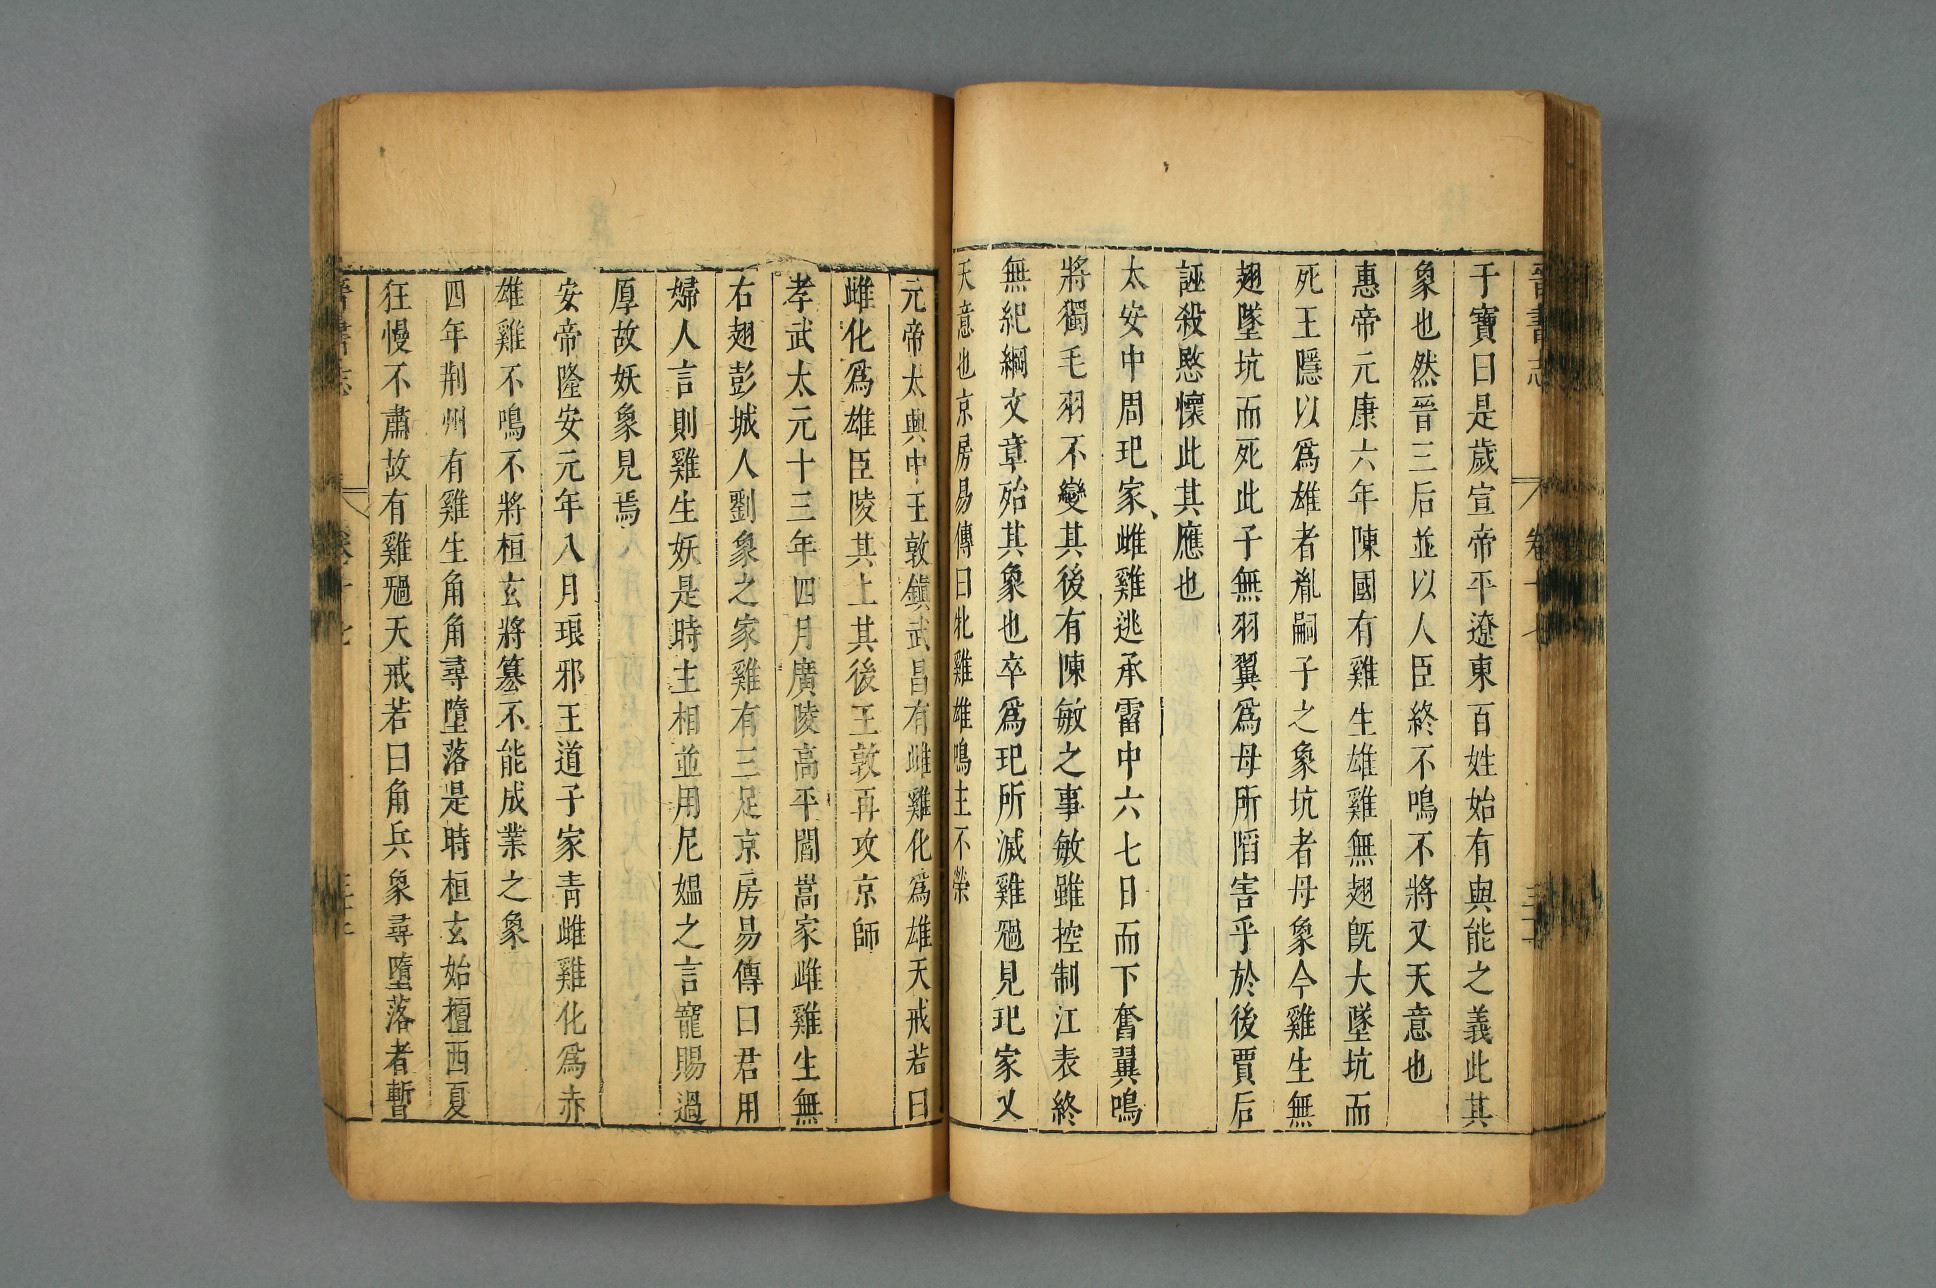 晉書志
卷十七
干寶曰是歲宣帝平遼東百姓始有與能之義此其
象也然晉三后並以人臣終不鳴不將又天意也
惠帝元康六年陳國有雞生雄雞無翅旣大墜坑而
死王隱以爲雄者胤嗣子之象坑者母象今雞生無
翅墜坑而死此子無羽翼爲母所陷害乎於後賈后
誣殺愍懷此其應也
太安中周玘家雌雞逃承霤中六七日而下奮翼鳴
將獨毛羽不變其後有陳敏之事敏雖控制江表終
無紀綱文章殆其象也卒爲玘所滅雞禍見玘家又
天意也京房易傳曰牝雞雄鳴主不榮
元帝太興中王敦鎮武昌有雌雞化爲雄天戒若曰
雌化爲雄臣陵其上其後王敦再攻京師
孝武太元十三年四月廣陵高平閻嵩家雌雞生無
右翅彭城人劉象之家雞有三足京房易傳曰君用
婦人言則雞生妖是時主相並用尼媼之言寵賜過
厚故妖象見焉
安帝隆安元年八月琅邪王道子家青雌雞化爲赤
雄雞不鳴不將桓玄將篡不能成業之象
四年荆州有雞生角角尋墮落是時桓玄始擅西夏
狂慢不肅故有雞禍天戒若曰角兵象尋墮落者暫
晉書志
卷十七